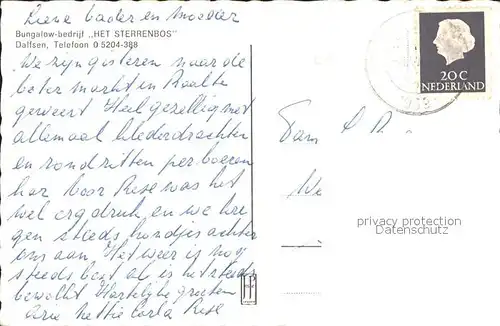 Lieve vader en moeder
Bungalow-bedrijf „HET STERRENBOS"
Dalfsen, Telefoon 0 5204-388
We zijn gisteren naar de
boter markt in Raalte
geweest Heel gezellig met
allemaal klederdrachten
en rondritten per boeren
kar voor Rese was het
wel erg druk en we kre
gen steeds hondjes achter
ons aan. Het weer is nog
steeds best al is het steeds
bewolkt Hartelijke groeten
Arie Nettie Carla Rese
20 C
NEDERLAND
Fam
privacy protection
Datenschutz